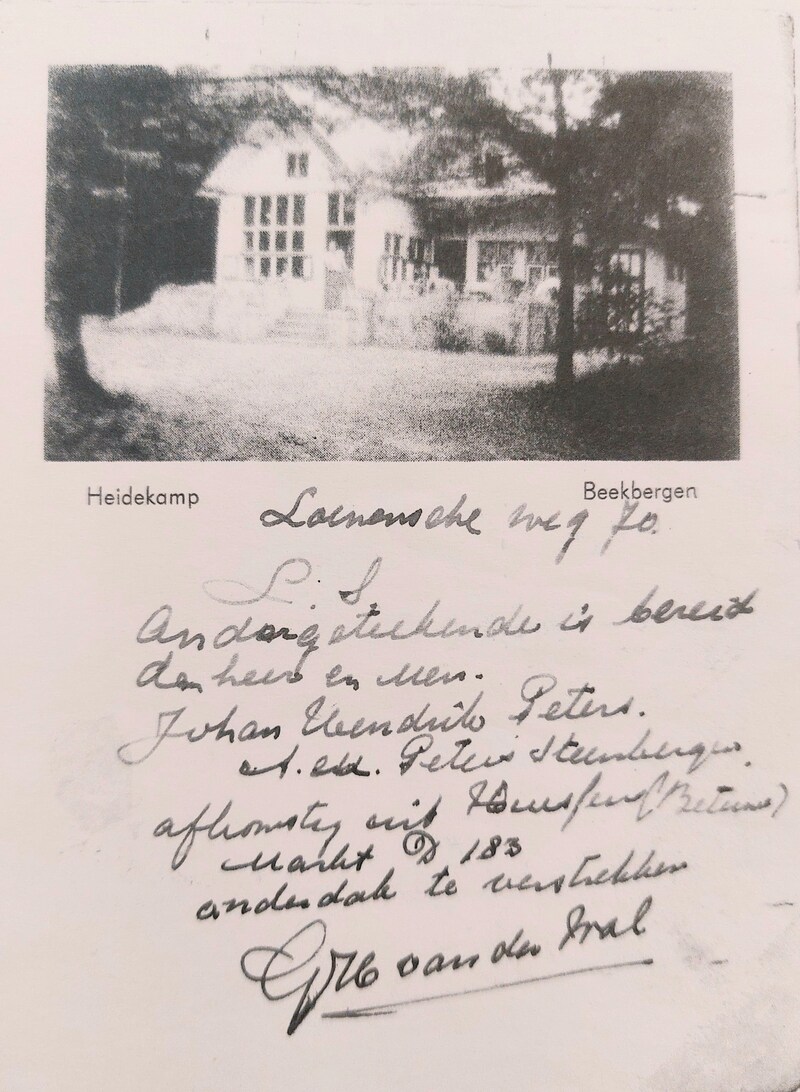 Heidekamp Beekbergen
Loenensche weg 70.
L. S.
Ondergeteekende is bereid
den heer en Mevr.
Johan Hendrik Peters.
A. M. Peters Steenbergen
afkomstig uit Huissen (Betuwe)
Markt D 183
onderdak te verstrekken
van der Wal